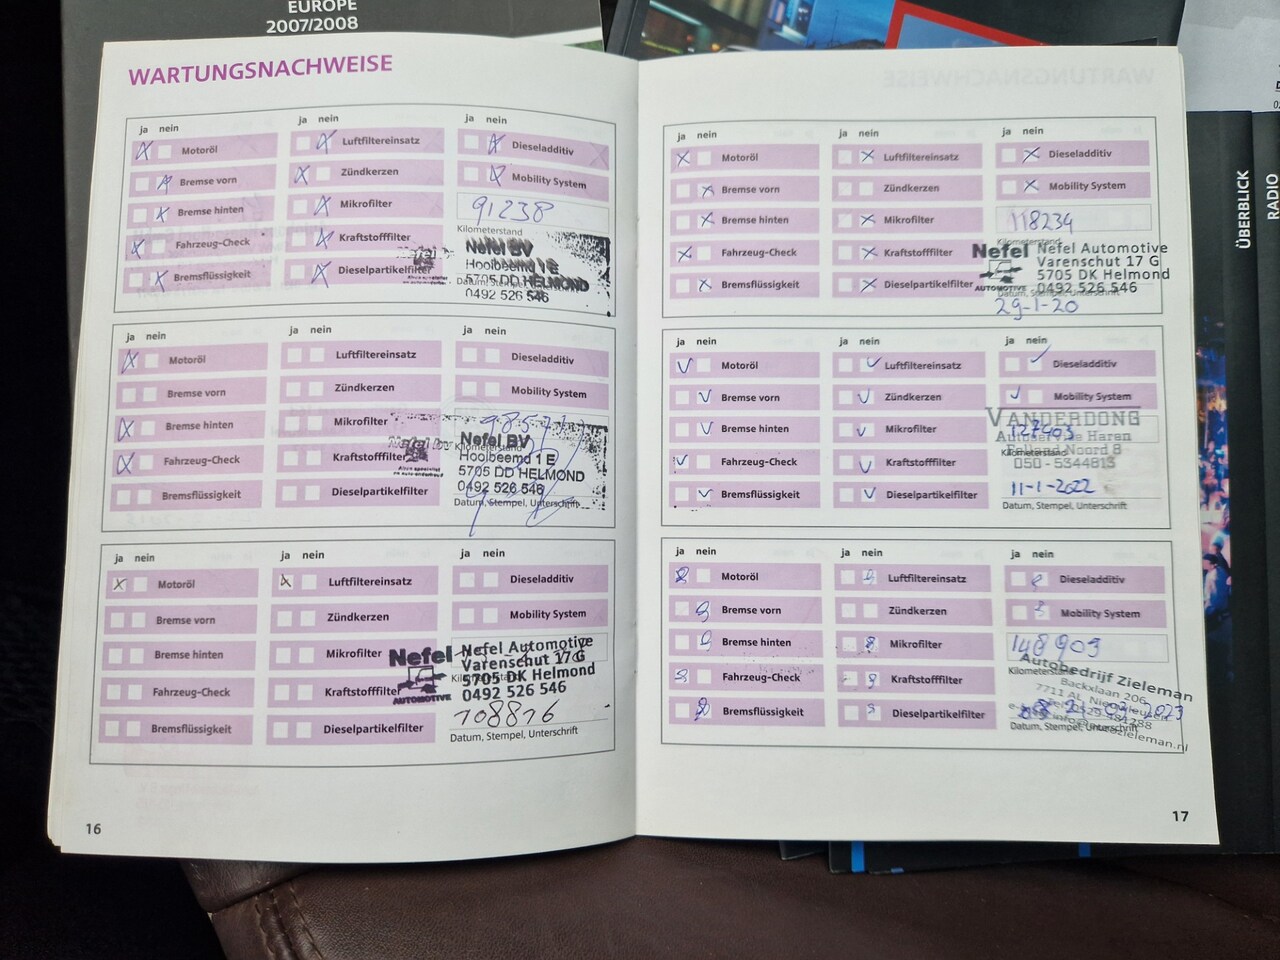 EUROPE
2007/2008
WARTUNGSNACHWEISE
ja nein
Motoröl
Bremse vorn
Bremse hinten
Fahrzeug-Check
Bremsflüssigkeit
ja nein
Luftfiltereinsatz
Zündkerzen
Mikrofilter
Kraftstofffilter
Dieselpartikelfilter
ja nein
Dieseladditiv
Mobility System
91238
Kilometerstand
Nefel BV
Hooibeemd 1 E
5705 DD HELMOND
0492 526 546
ja nein
Motoröl
Bremse vorn
Bremse hinten
Fahrzeug-Check
Bremsflüssigkeit
ja nein
Luftfiltereinsatz
Zündkerzen
Mikrofilter
Kraftstofffilter
Dieselpartikelfilter
ja nein
Dieseladditiv
Mobility System
Kilometerstand
Nefel BV
Hooibeemd 1 E
5705 DD HELMOND
0492 526 546
Datum, Stempel, Unterschrift
ja nein
Motoröl
Bremse vorn
Bremse hinten
Fahrzeug-Check
Bremsflüssigkeit
ja nein
Luftfiltereinsatz
Zündkerzen
Mikrofilter
Kraftstofffilter
Dieselpartikelfilter
ja nein
Dieseladditiv
Mobility System
Nefel
AUTOMOTIVE
Nefel Automotive
Varenschut 17 G
5705 DK Helmond
0492 526 546
108816
Datum, Stempel, Unterschrift
16
ja nein
Motoröl
Bremse vorn
Bremse hinten
Fahrzeug-Check
Bremsflüssigkeit
ja nein
Luftfiltereinsatz
Zündkerzen
Mikrofilter
Kraftstofffilter
Dieselpartikelfilter
ja nein
Dieseladditiv
Mobility System
118234
Kilometerstand
Nefel
AUTOMOTIVE
Nefel Automotive
Varenschut 17 G
5705 DK Helmond
0492 526 546
Datum, Stempel, Unterschrift
29-1-20
ja nein
Motoröl
Bremse vorn
Bremse hinten
Fahrzeug-Check
Bremsflüssigkeit
ja nein
Luftfiltereinsatz
Zündkerzen
Mikrofilter
Kraftstofffilter
Dieselpartikelfilter
ja nein
Dieseladditiv
Mobility System
VANDERDONG
Autoservice Haren
127403
Kilometerstand
Noord 8
050 - 5344813
11-1-2022
Datum, Stempel, Unterschrift
ja nein
Motoröl
Bremse vorn
Bremse hinten
Fahrzeug-Check
Bremsflüssigkeit
ja nein
Luftfiltereinsatz
Zündkerzen
Mikrofilter
Kraftstofffilter
Dieselpartikelfilter
ja nein
Dieseladditiv
Mobility System
148909
Kilometerstand
Autobedrijf Zieleman
Backxlaan 206
2023
Datum, Stempel, Unterschrift
17
ÜBERBLICK
RADIO